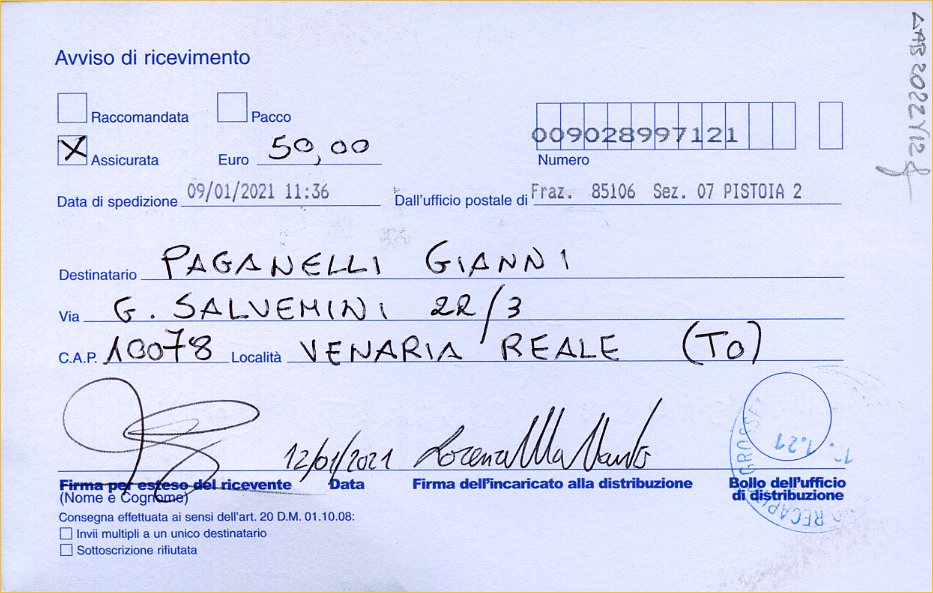 Avviso di ricevimento
Raccomandata Pacco
Assicurata Euro 50,00
009028997121
Numero
Data di spedizione 09/01/2021 11:36 Dall'ufficio postale di Fraz. 85106 Sez. 07 PISTOIA 2
Destinatario PAGANELLI GIANNI
Via G. SALVEMINI 22/3
C.A.P. 10078 Località VENARIA REALE (TO)
12/01/2021
Firma per esteso del ricevente Data Firma dell'incaricato alla distribuzione Bollo dell'ufficio
(Nome e Cognome) di distribuzione
Consegna effettuata ai sensi dell'art. 20 D.M. 01.10.08:
Invii multipli a un unico destinatario
Sottoscrizione rifiutata